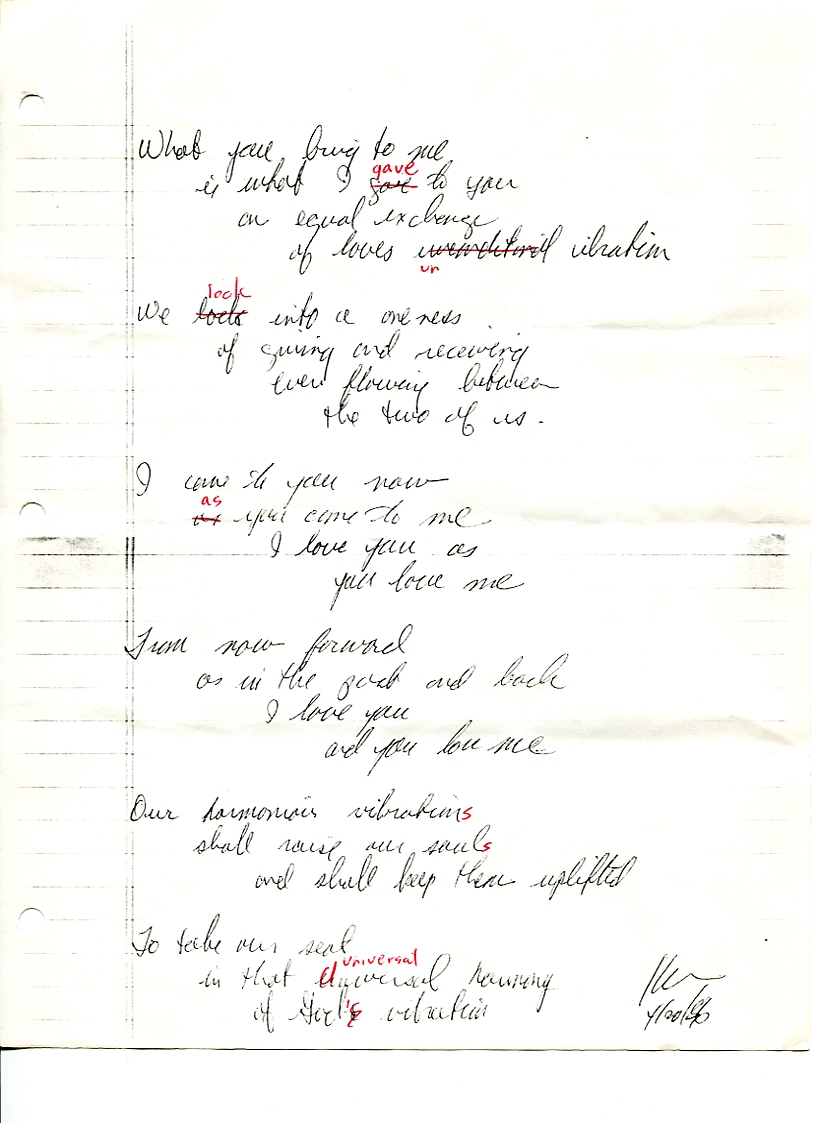 What you bring to me
gave
is what I gave to you
an equal exchange
of loves unconditional vibration
un
lock
We lock into a oneness
of giving and receiving
even flowing between
the two of us.
I came to you now
as
as you came to me
I love you as
you love me
From now forward
as in the past and back
I love you
and you love me
Our harmonious vibrations
shall raise our souls
and shall keep them uplifted
To take our seat
universal
in that Universal humming
of God's vibration